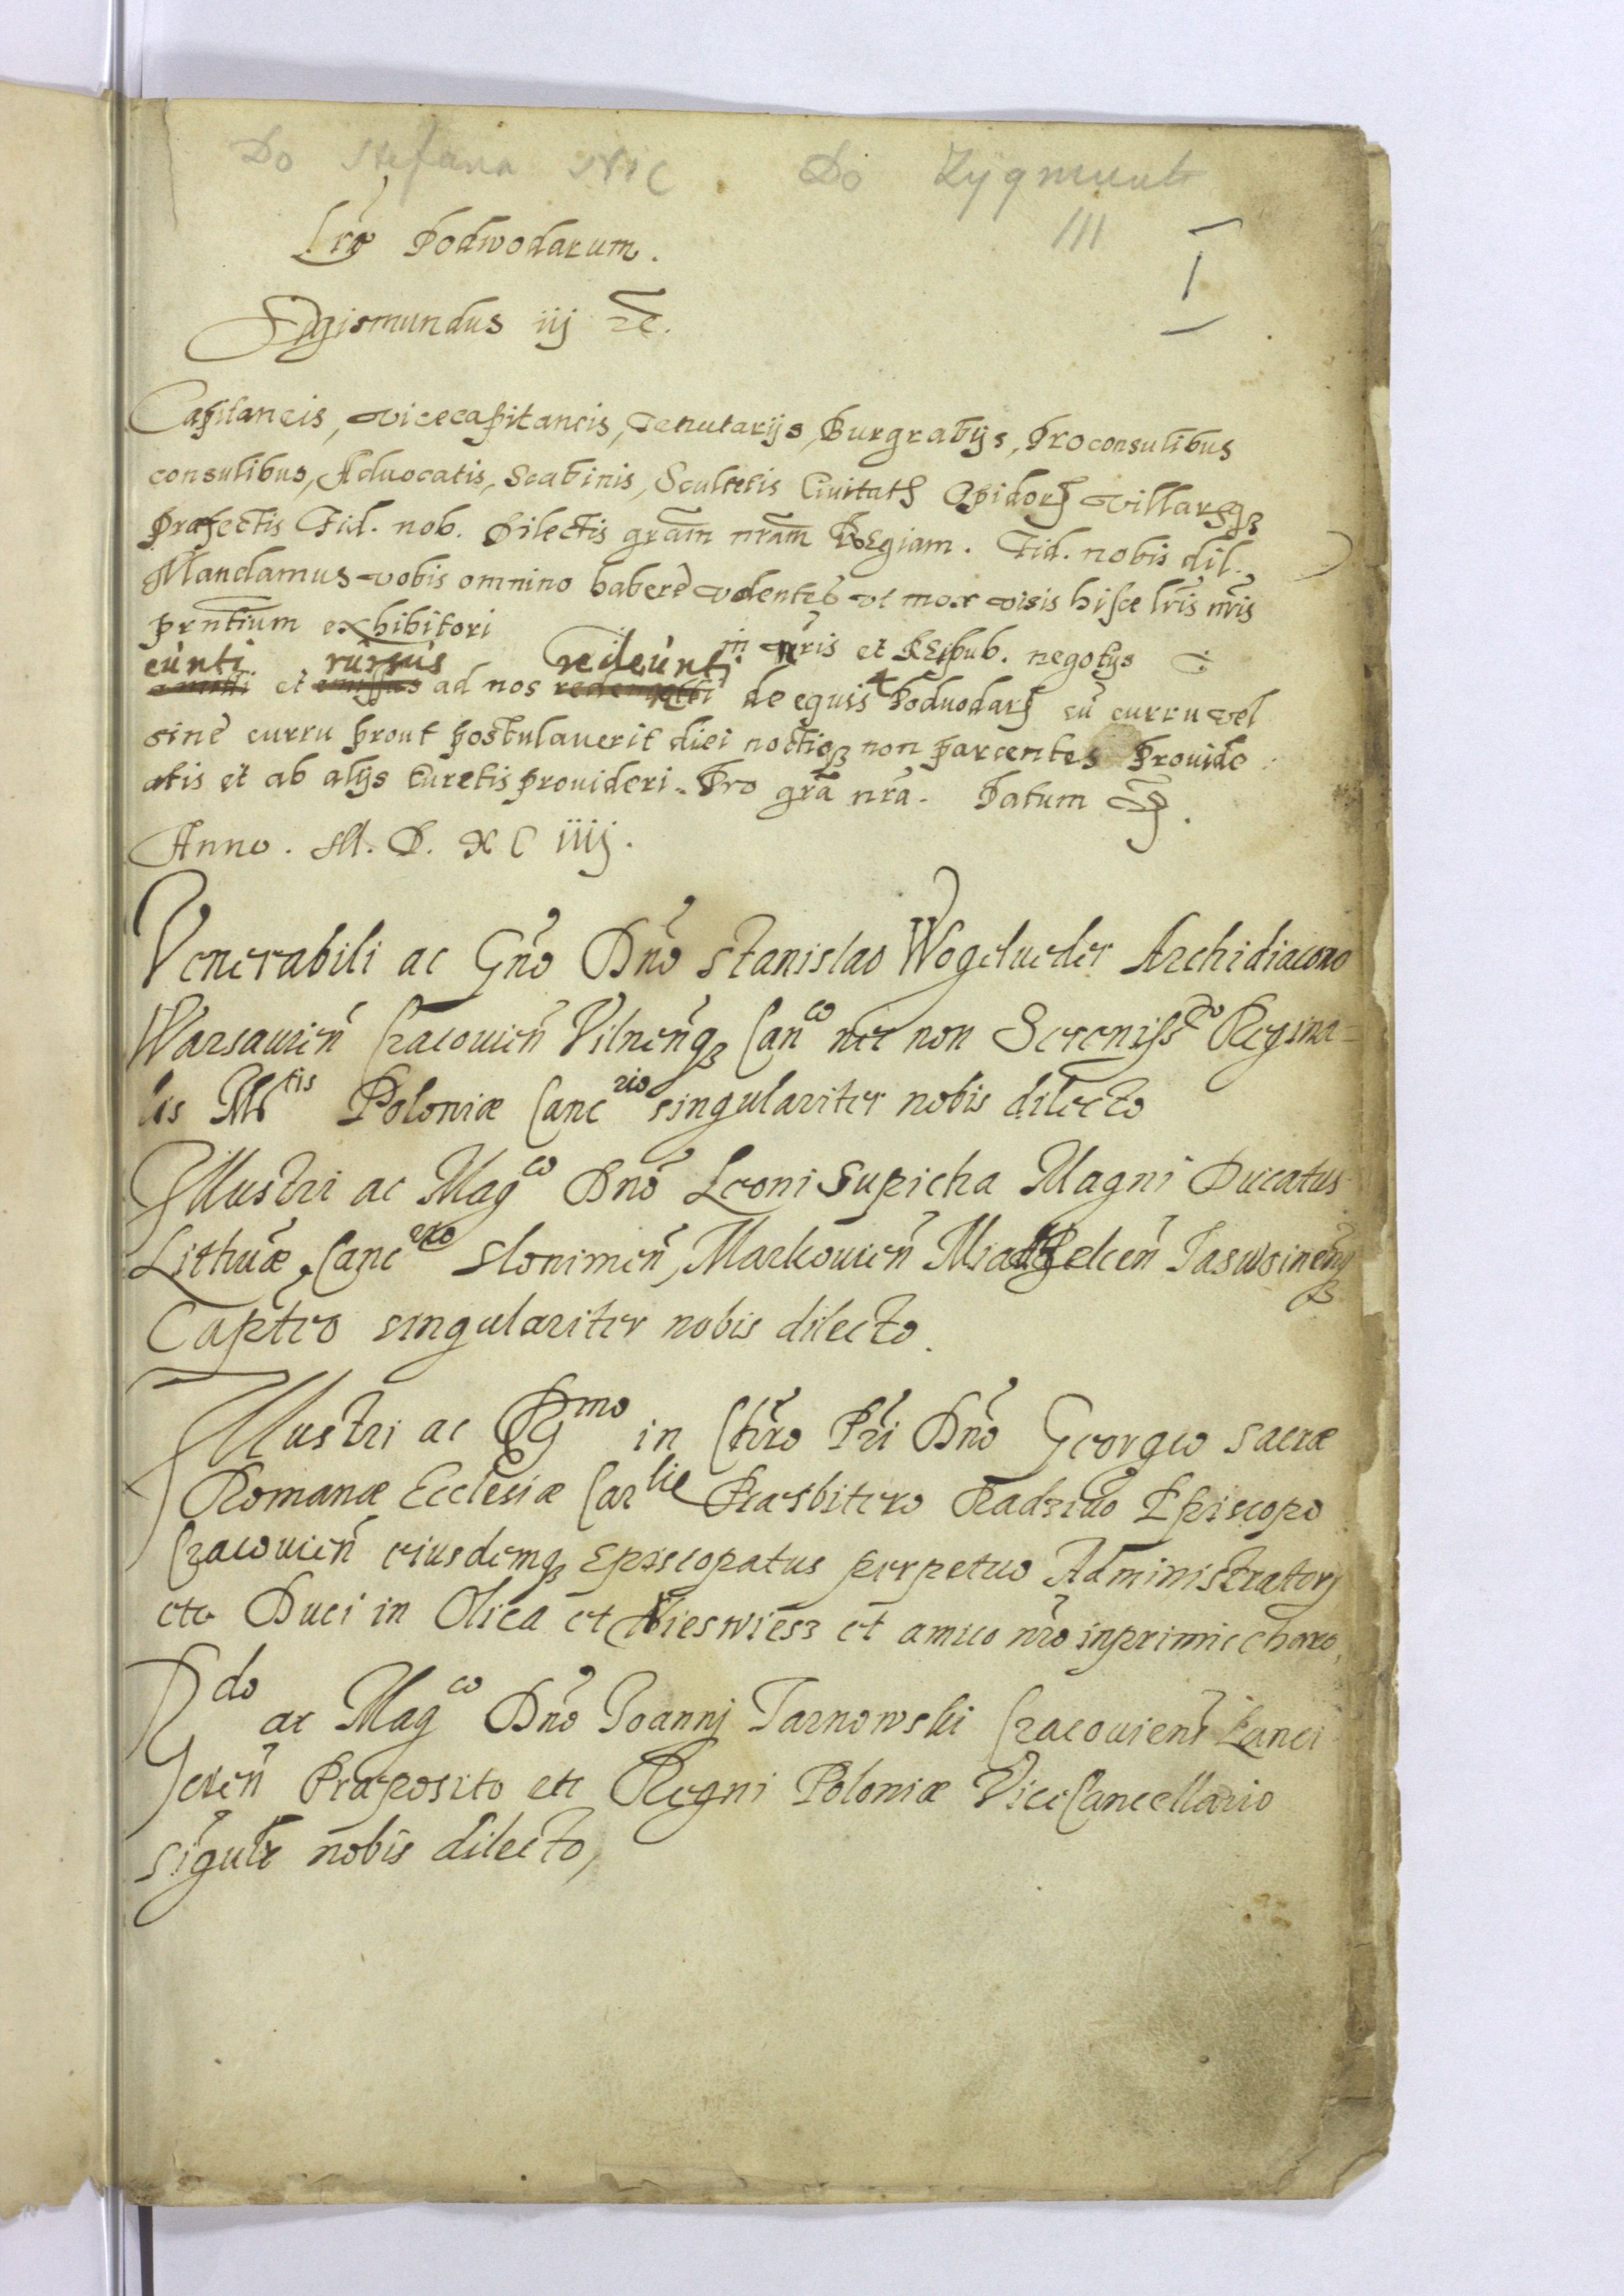 Do Stefana Do Zygmunt
III
I
Lrã Podwodarum.
Sigismundus iij
Capitaneis, vicecapitaneis, Tenutarijs, Burgrabijs, Proconsulibus
consulibus, Advocatis, Scabinis, Scultetis Civitatũ Opidorũ villarũqʒ
Præfectis Fid. nob. Dilectis grãm nrãm Regiam. Fid. nobis dil.
Mandamus vobis omnino habere volentes vt mox visis hisce lris nris
prñtium exhibitori in nris et Reipub. negotijs
eunti rursus redeunti
et ad nos de equis 4 Podvodarũ cũ curru vel
sine curru prout postulaverit diei noctisqʒ non parcentes Provide
atis et ab alijs Curetis provideri. Pro grã nrã. Datum
Anno. M. D. XC iiij.
Venerabili ac Gñō Dnō Stanislao Wogelweder Archidiacono
Warsavieñ Cracovieñ Vilneñqʒ Canco nec non Serenissæ Regina=
lis Mtis Poloniæ Cancrio singulariter nobis dilecto
Illustri ac Magco Dnō Leoni Sapieha Magni Ducatus
Lithuæ Cancrio Slonimeñ, Markovieñ Jaswoineñqʒ
Captēo singulariter nobis dilecto.
Illustri ac Rmo in Chro Pri Dnō Georgio sacræ
Romanæ Ecclesiæ Carlie Præsbitero Radziwo Episcopo
Cracovieñ eiusdemqʒ Episcopatus perpetuo Administratori
etc Duci in Olica et Nieswiesz et amico nrō inprimis charo,
Rdo ac Magco Dnō Joannj Tarnowski Cracovieñ Lanci
cieñ Præposito etc Regni Poloniæ ViceCancellario
sigulr nobis dilecto,